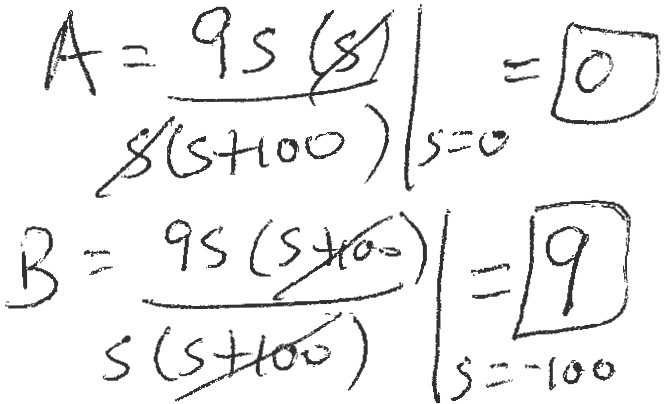 A = 9s(s) / s(s+100) | s=0 = 0
B = 9s(s+100) / s(s+100) | s=-100 = 9